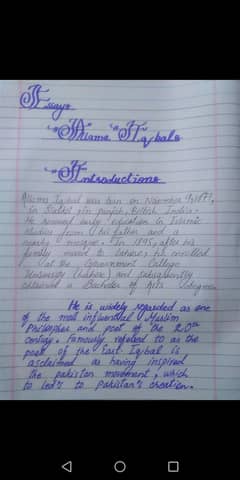 Essay
"Allama" "Iqbal"
"Introduction"
Allama Iqbal was born on November 9, 1877,
in Sialkot in punjab, British India.
He received early education in Islamic
studies from his father and a
nearby mosque. In 1895, after his
family moved to Lahore, he enrolled
at the Government College
University (Lahore) and subsequently
obtained a Bachelor of Arts degree
He is widely regarded as one
of the most influential Muslim
Philospher and poet of the 20th
century. Famously refered to as the
poet of the East Iqbal is
acclaimed as having inspired
the pakistan movement, which
to led's to pakistan's creation.